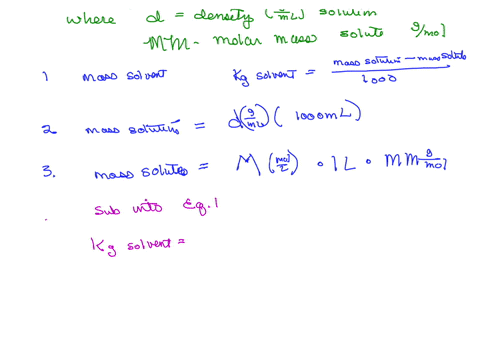 where d = density (g/mL) solution
MM - molar mass solute g/mol
1 mass solvent Kg solvent = (mass solution - mass solute)/1000
2. mass solution = d(g/mL)(1000mL)
3. mass solute = M(mol/L) • 1L • MM g/mol
Sub into Eq. 1
Kg solvent =